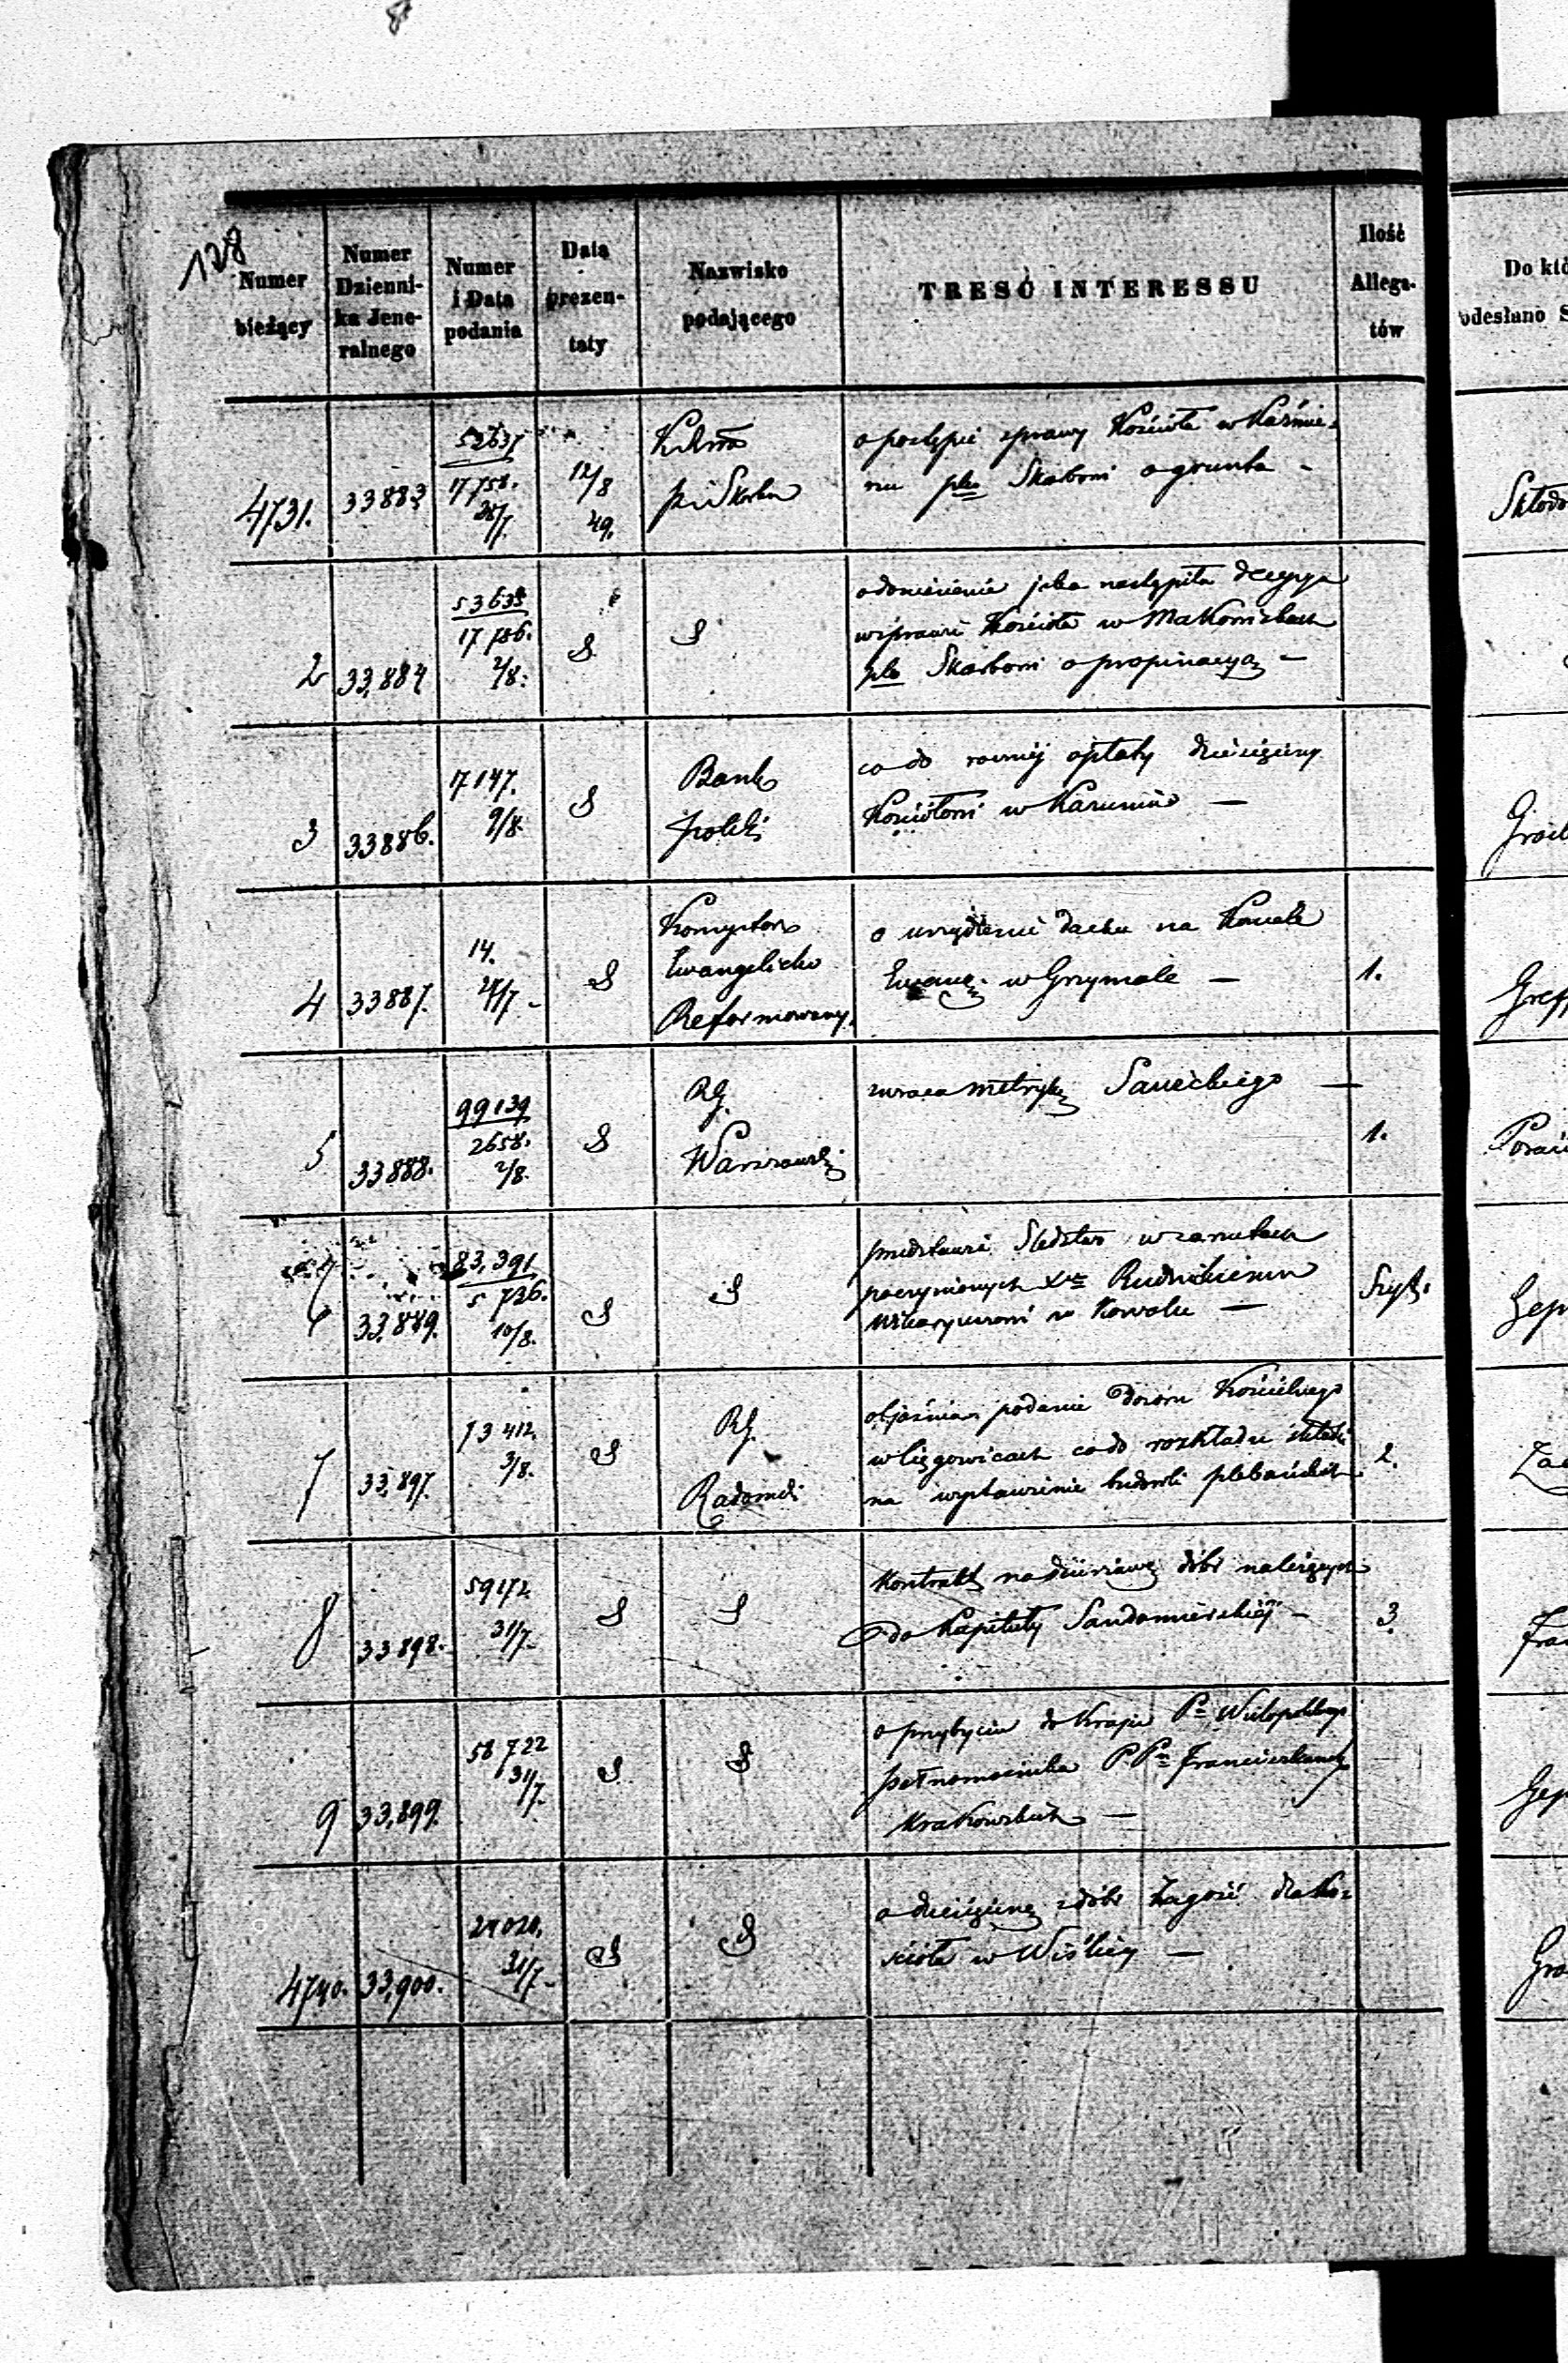 128
Numer
bieżący
Numer
Dzienni-
ka Jene-
ralnego
Numer
i Data
podania
Data
prezen-
taty
Nazwisko
podającego
TRESĆ INTERESSU
Ilość
Allega-
tów
Do któ
odesłano S
4731.
33883
52637
17758.
28/7.
12/8
49.
o postępie sprawy Kościoła w Kaźmie-
rzu plo Skarbowi o grunta -
Skłodo
2
33,884
53635
17786.
2/8.
S
S
o doniesienie jaka nastąpiła decyzya
w sprawie Kościoła w Makoniskach
plo Skarbowi o propinacyą -
3
33886.
7147.
9/8.
S
Bank
Polski
co do rocznéj opłaty dziesięciny
Kościołowi w Karuniu -
4
33887.
14.
24/7 -
S
Konsystorz
Ewangelicko
Reformowany
o urządzenie dachu na
Ewang. w Grzymale -
1.
5
33888.
99139
2658.
2/8.
S
RG.
Warszawski
zwraca metrykę Saneckiego -
1.
6
33,889.
83,391
5726.
10/8.
S
S
przedstawia Śledztwo w zarzutach
poczynionych Xdzu Rudnickiemu
Wikaryuszowi w Kowalu -
Szyt.
Gep
7
33,897.
73412.
3/8.
S
RG.
Radomski
objaśnia podanie Dozoru Kościelnego
w co do rozkładu składki
na wystawienie budowli plebańskich
2.
8
33898.
59172
31/7
S
S
Kontrakt na dzierżawę dóbr należących
do Kapituły Sandomierskiéj -
3
Fra
9
33,899.
58722
31/7.
S
S
o przybyciu do Kraju Pa Wielopolskiego
pełnomocnika P.Pn Franciszkanek
Krakowskich -
Gep
4740.
33,900.
24020.
31/7 -
S
S
o dziesięcinę z dóbr Zagość dla Ko-
ścioła w Wiślicy -